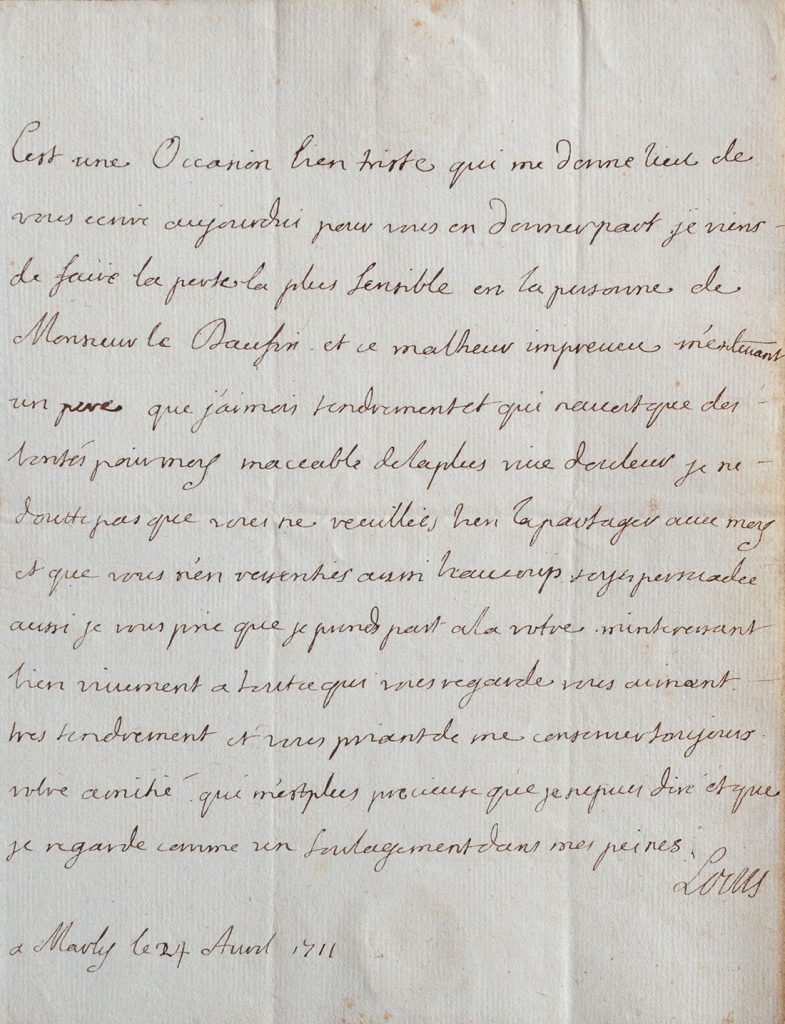 C'est une Occasion bien triste qui me donne lieu de
vous ecrire aujourdui pour vous en donner part je viens
de faire la perte la plus sensible en la personne de
Monsieur le Daufin et ce malheur impreveu m'enlevant
un pere que j'aimois tendrement et qui n'avoit que des
bontés pour moy m'accable de la plus vive douleur je ne
doutte pas que vous ne veuilliés bien la partager avec moy
et que vous n'en ressentiés aussi beaucoup soyés persuadée
aussi je vous prie que je prends part a la votre m'interessant
bien vivement a tout ce qui vous regarde vous aimant
tres tendrement et vous priant de me conserver toujours
votre amitié qui m'est plus precieuse que je ne puis dire et que
je regarde comme un soulagement dans mes peines.
Louis
a Marly le 24 Avril 1711